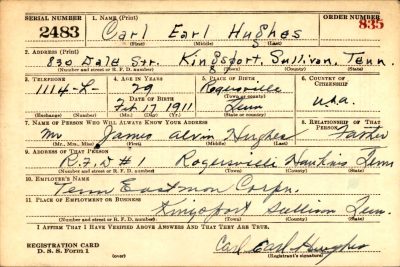 SERIAL NUMBER 1. NAME (Print) ORDER NUMBER
2483 Carl Earl Hughes 835
(First) (Middle) (Last)
2. ADDRESS (Print)
830 Dale Str. Kingsport, Sullivan, Tenn.
(Number and street or R. F. D. number) (Town) (County) (State)
3. TELEPHONE 4. AGE IN YEARS 5. PLACE OF BIRTH 6. COUNTRY OF CITIZENSHIP
1114-X- 29 Rogersville U.S.A.
DATE OF BIRTH (Town or county)
Feb 17 1911 Tenn
(Exchange) (Number) (Mo.) (Day) (Yr.) (State or country)
7. NAME OF PERSON WHO WILL ALWAYS KNOW YOUR ADDRESS 8. RELATIONSHIP OF THAT PERSON
Mr James Alvin Hughes Father
(Mr., Mrs., Miss) (First) (Middle) (Last)
9. ADDRESS OF THAT PERSON
R.F.D #1 Rogersville Hawkins Tenn
(Number and street or R. F. D. number) (Town) (County) (State)
10. EMPLOYER'S NAME
Tenn Eastman Corpn.
11. PLACE OF EMPLOYMENT OR BUSINESS
Kingsport Sullivan Tenn.
(Number and street or R. F. D. number) (Town) (County) (State)
I AFFIRM THAT I HAVE VERIFIED ABOVE ANSWERS AND THAT THEY ARE TRUE.
REGISTRATION CARD
D. S. S. Form 1 (over) Carl Earl Hughes
(Registrant's signature)